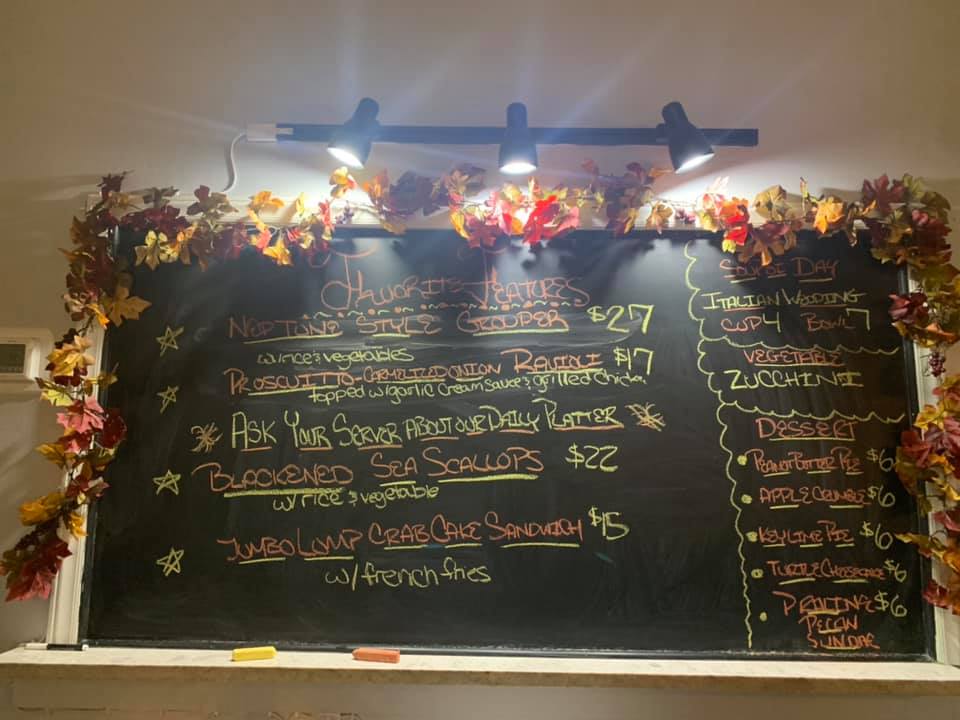 Favorite Features
Neptune Style Grouper $27
w/rice & vegetables
Proscuitto-Carmelized Onion Ravioli $17
topped w/garlic Cream Sauce & grilled Chicken
Ask Your Server About our Daily Platter
Blackened Sea Scallops $22
w/ rice & vegetable
Jumbo Lump Crab Cake Sandwich $15
w/ french fries
Soup of Day
Italian Wedding
Cup 4 Bowl 7
Vegetable
Zucchini
Dessert
Peanut Butter Pie $6
Apple Crumble $6
Key Lime Pie $6
Turtle Cheesecake $6
Praline $6
Pecan
Sundae